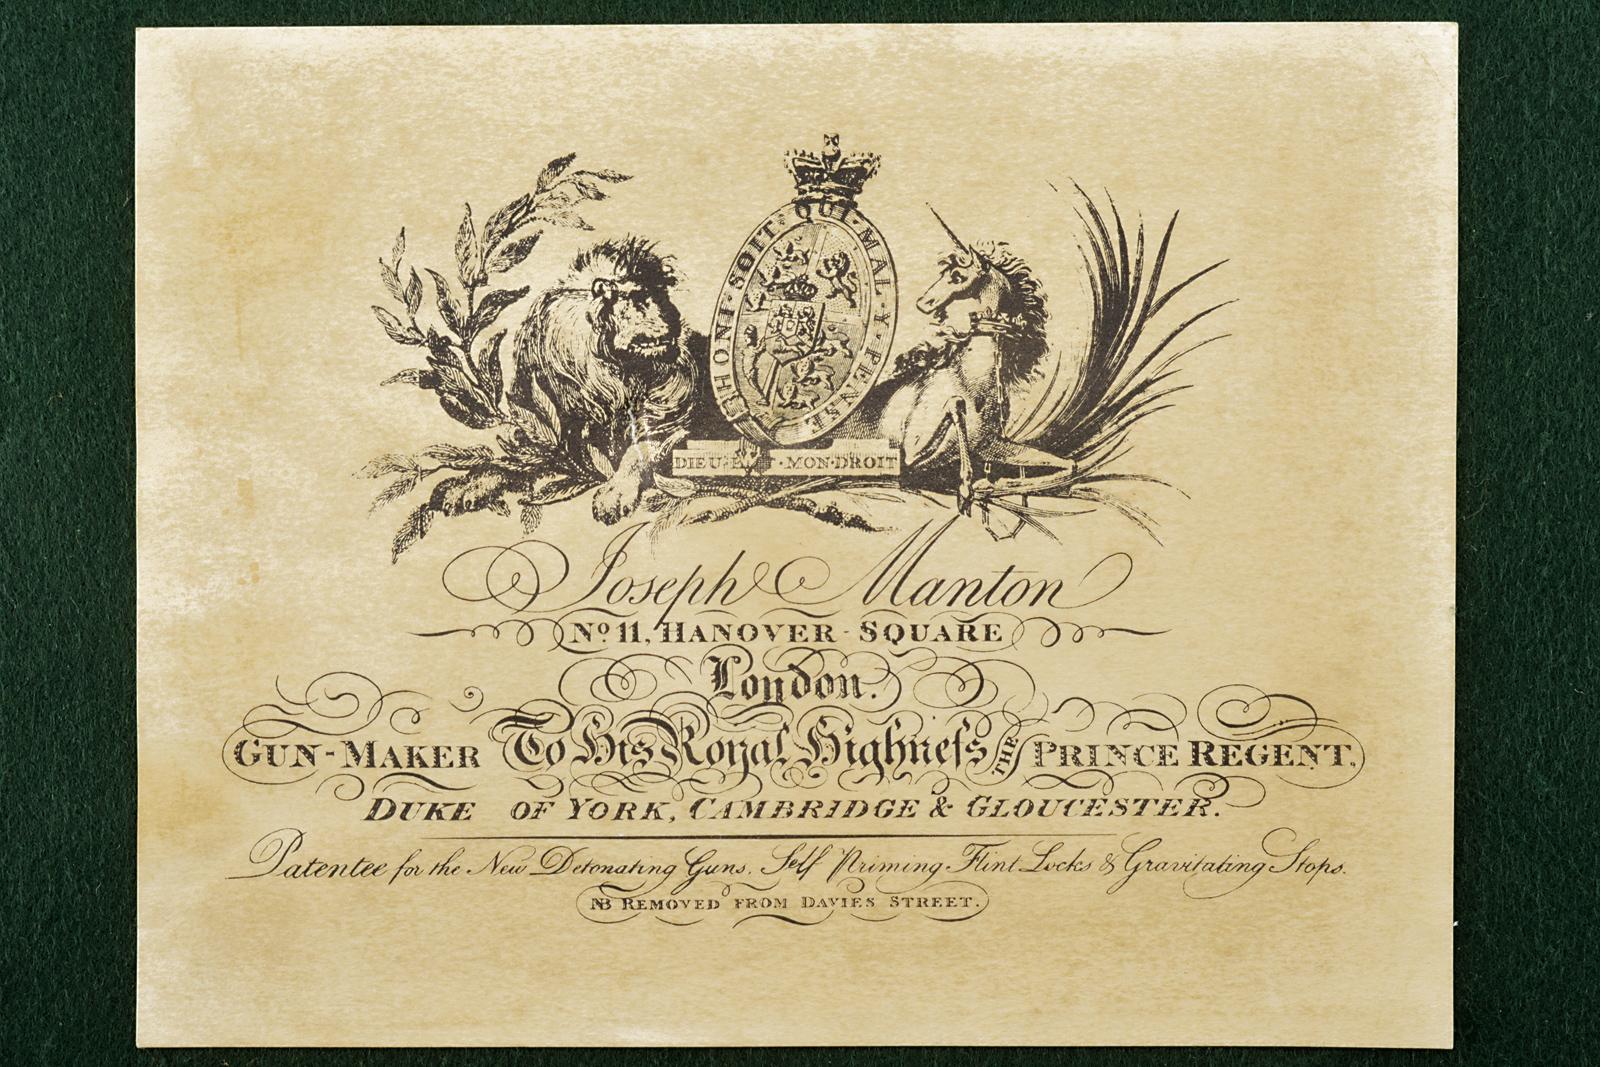 HONI·SOIT·QUI·MAL·Y·PENSE
DIEU·ET·MON·DROIT
Joseph Manton
No 11, HANOVER-SQUARE
London.
GUN-MAKER To His Royal Highneſs THE PRINCE REGENT,
DUKE OF YORK, CAMBRIDGE & GLOUCESTER.
Patentee for the New Detonating Guns, Self Priming Flint Locks & Gravitating Stops.
NB REMOVED FROM DAVIES STREET.